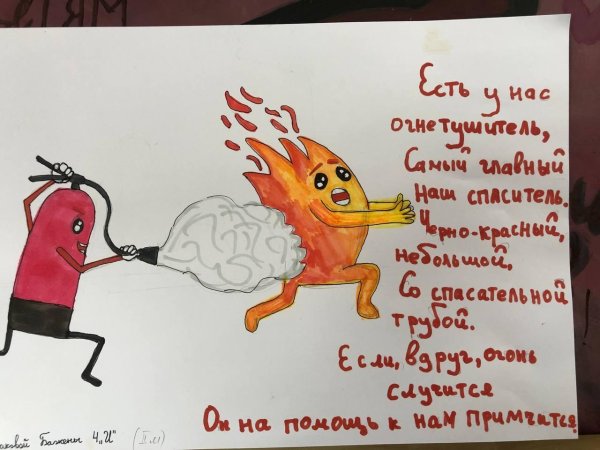 Есть у нас
огнетушитель,
Самый главный
наш спаситель.
Черно-красный,
небольшой,
Со спасательной
трубой.
Если, вдруг, огонь
случится
Он на помощь к нам примчится.
Бажены 4 „И"